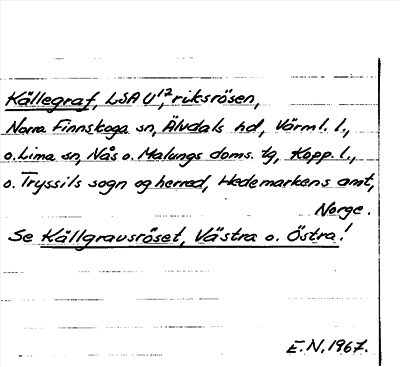 Källegraf, LSA U¹², riksrösen,
Norra Finnskoga sn, Älvdals hd, Värml. l.,
o. Lima sn, Nås o. Malungs doms. tg, Kopp. l.,
o. Tryssils sogn og herred, Hedemarkens amt,
Norge.
Se Källgravsröset, Västra o. Östra!
E.N. 1967.